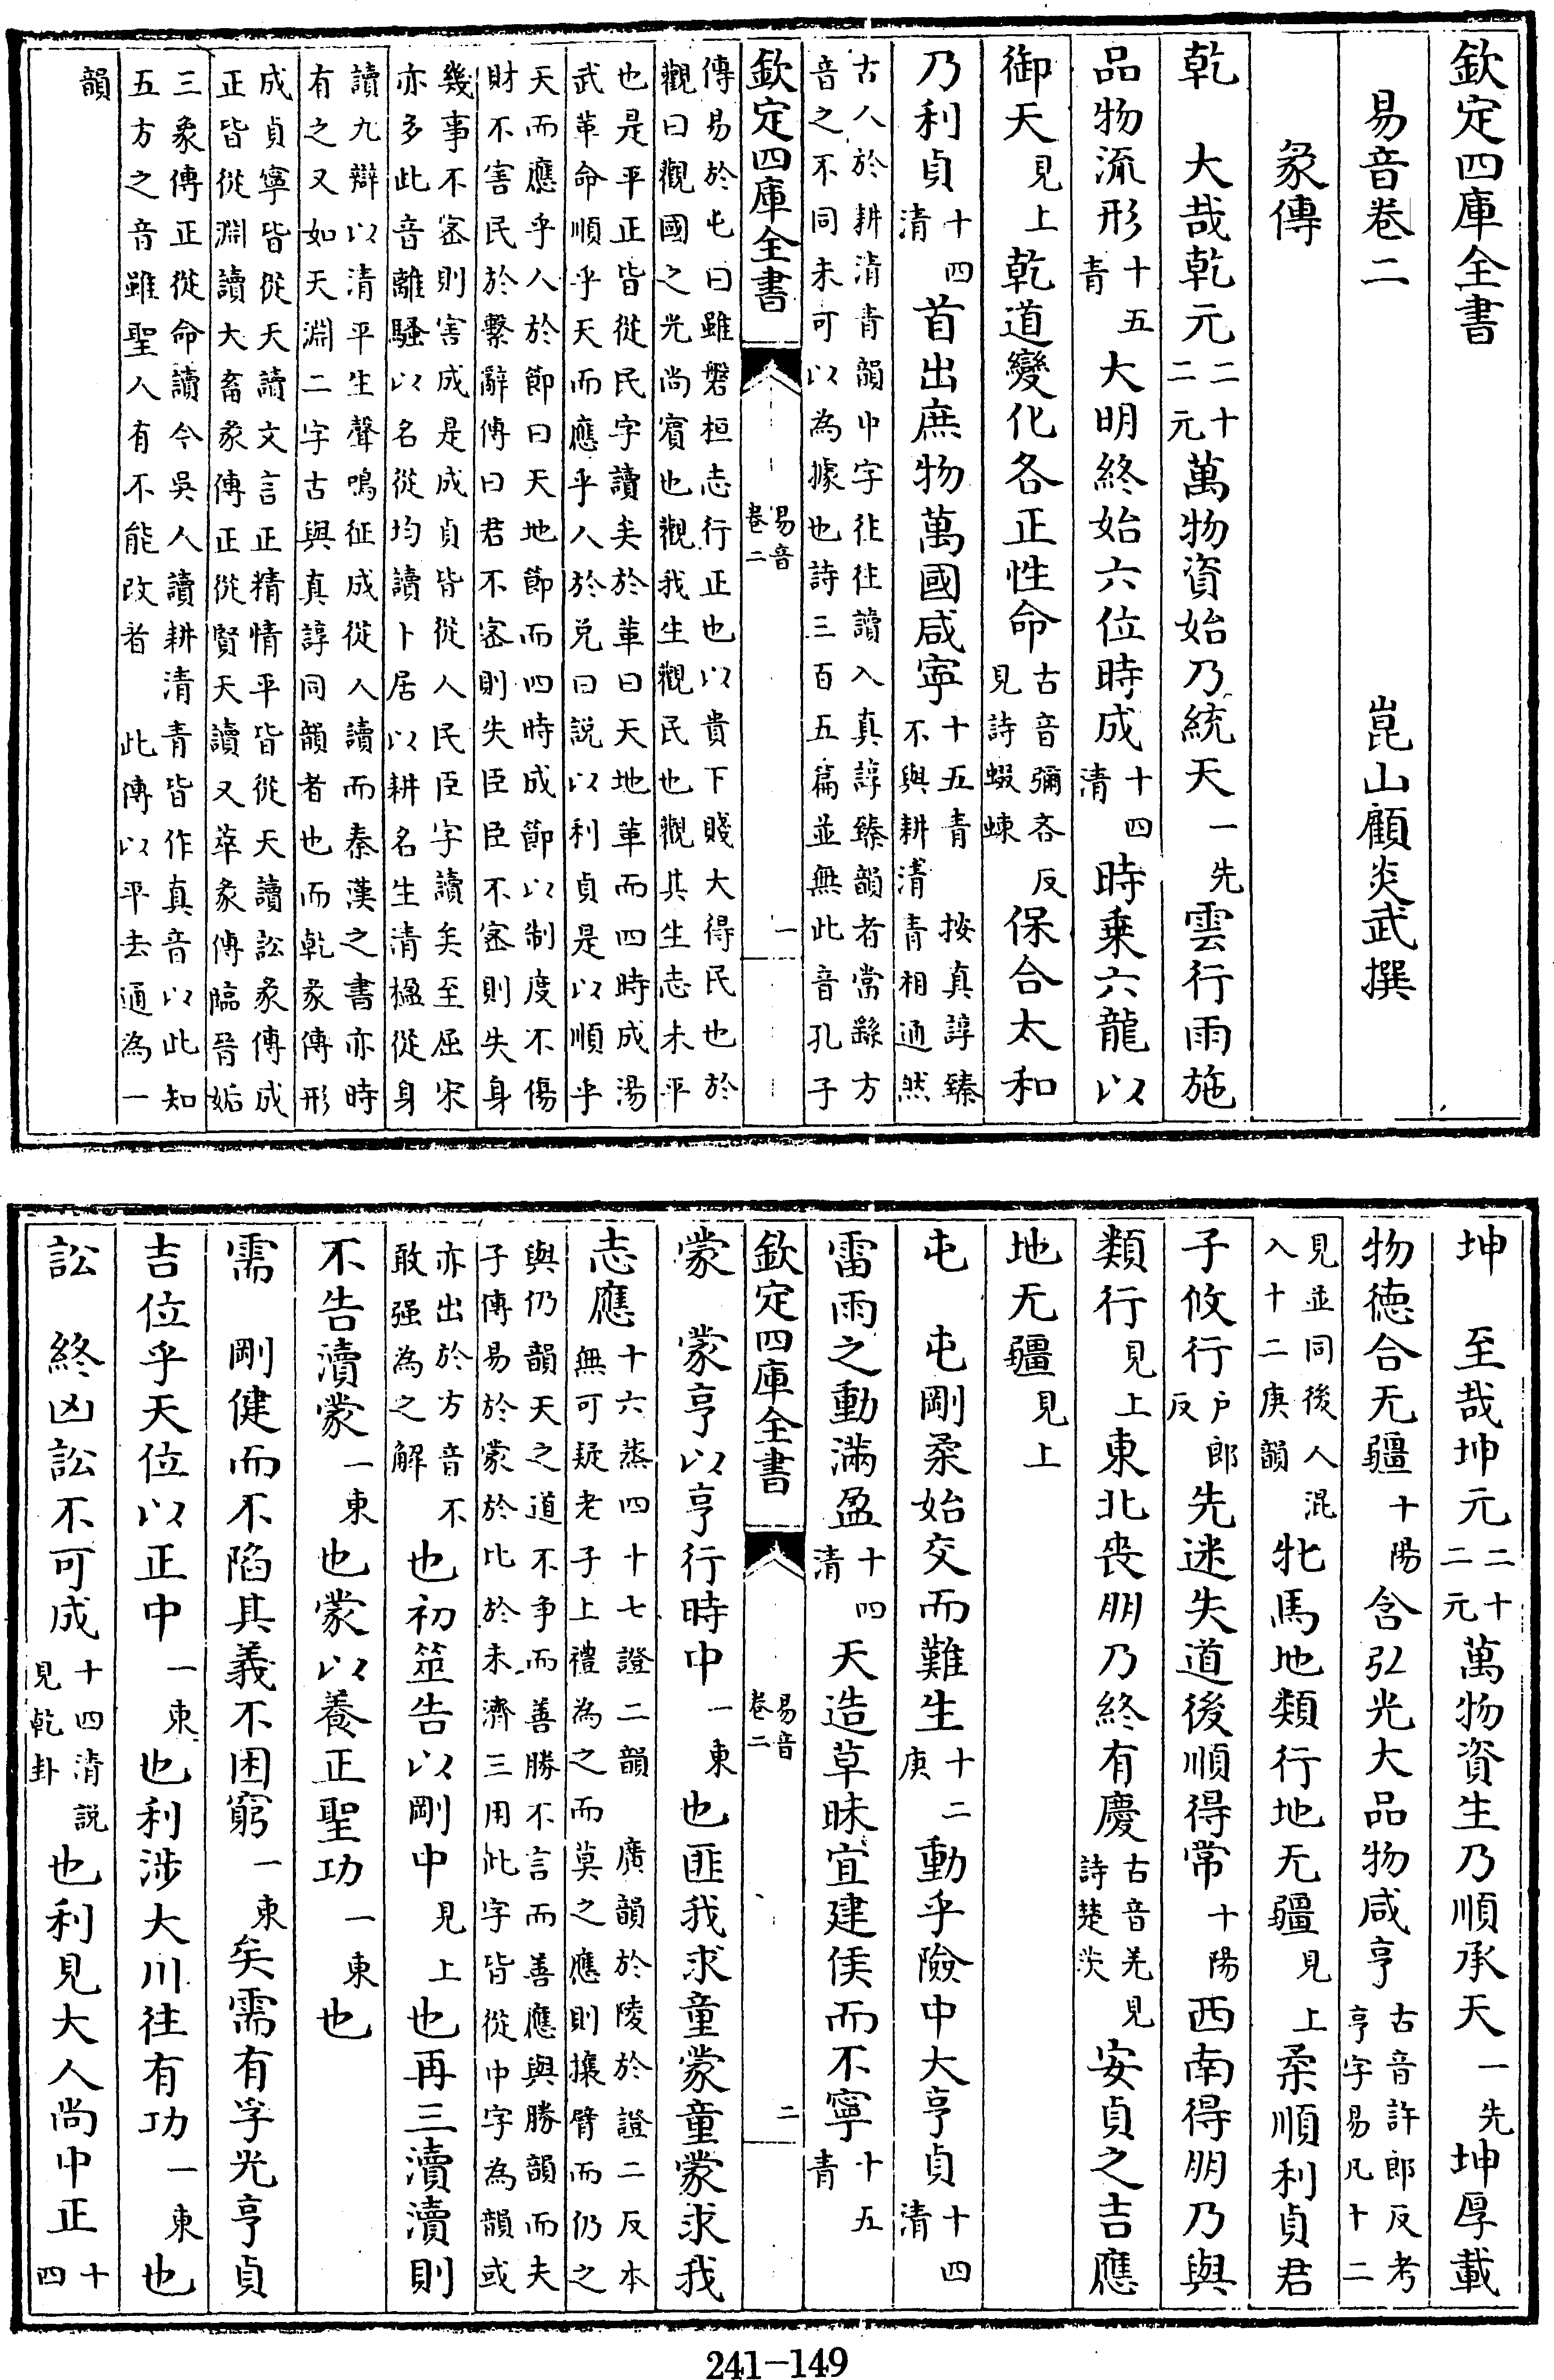 欽定四庫全書
易音卷二
崑山顧炎武撰
彖傳
乾　大哉乾元二十二元萬物資始乃統天一先雲行雨施
品物流形十五青大明終始六位時成十四清時乗六龍以
御天見上乾道變化各正性命古音彌吝反見詩蝃蝀保合太和
乃利貞十四清首出庶物萬國咸寧十五青不與耕清青相通然按真諄臻
古人於耕清青韻中字往往讀入真諄臻韻者當繇方
音之不同未可以為據也詩三百五篇並無此音孔子
欽定四庫全書
易音
卷二
一
傳易於屯曰雖磐桓志行正也以貴下賤大得民也於
觀曰觀國之光尚賓也觀我生觀民也觀其生志未平
也是平正皆從民字讀矣於革曰天地革而四時成湯
武革命順乎天而應乎人於兑曰説以利貞是以順乎
天而應乎人於節曰天地節而四時成節以制度不傷
財不害民於繫辭傳曰君不宻則失臣臣不宻則失身
幾事不宻則害成是成貞皆從人民臣字讀矣至屈宋
亦多此音離騷以名從均讀卜居以耕名生清楹從身
讀九辯以清平生聲鳴征成從人讀而秦漢之書亦時
有之又如天淵二字古與真諄同韻者也而乾彖傳形
成貞寧皆從天讀文言正精情平皆從天讀訟彖傳成
正皆從淵讀大畜彖傳正從賢天讀又萃彖傳臨晉姤
三彖傳正從命讀今吳人讀耕清青皆作真音以此知
五方之音雖聖人有不能改者　此傳以平去通為一
韻
坤　至哉坤元二十二元萬物資生乃順承天一先坤厚載
物徳合无疆十陽含弘光大品物咸亨古音許郎反考亨字易凡十二
見並同後人混入十二庚韻牝馬地類行地无疆見上柔順利貞君
子攸行户郎反先迷失道後順得常十陽西南得朋乃與
類行見上東北喪朋乃終有慶古音羌見詩楚茨安貞之吉應
地无疆見上
屯　屯剛柔始交而難生十二庚動乎險中大亨貞十四清
雷雨之動滿盈十四清天造草昧宜建侯而不寧十五青
欽定四庫全書
易音
卷二
二
蒙　蒙亨以亨行時中一東也匪我求童蒙童蒙求我
志應十六蒸四十七證二韻　廣韻於陵於證二反本無可疑老子上禮為之而莫之應則攘臂而仍之
與仍韻天之道不争而善勝不言而善應與勝韻而夫子傳易於蒙於比於未濟三用此字皆從中字為韻或
亦出於方音不敢强為之解也初筮告以剛中見上也再三瀆瀆則
不告瀆蒙一東也蒙以養正聖功一東也
需　剛健而不陷其義不困窮一東矣需有孚光亨貞
吉位乎天位以正中一東也利涉大川往有功一東也
訟　終凶訟不可成十四清説見乾卦也利見大人尚中正十四
241-149